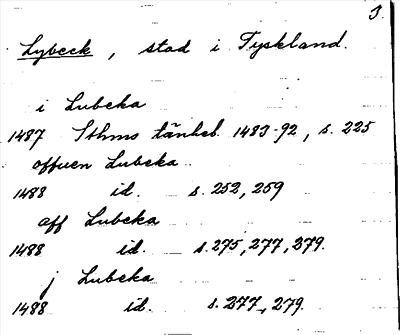 3.
Lybeck, stad i Tyskland.
i Lubeka
1487 Sthms tänkeb. 1483-92, s. 225
offuen Lubeka
1488 id. s. 252, 259
off Lubeka
1488 id. s. 275, 277, 279.
j Lubeka
1488 id. s. 277, 279.